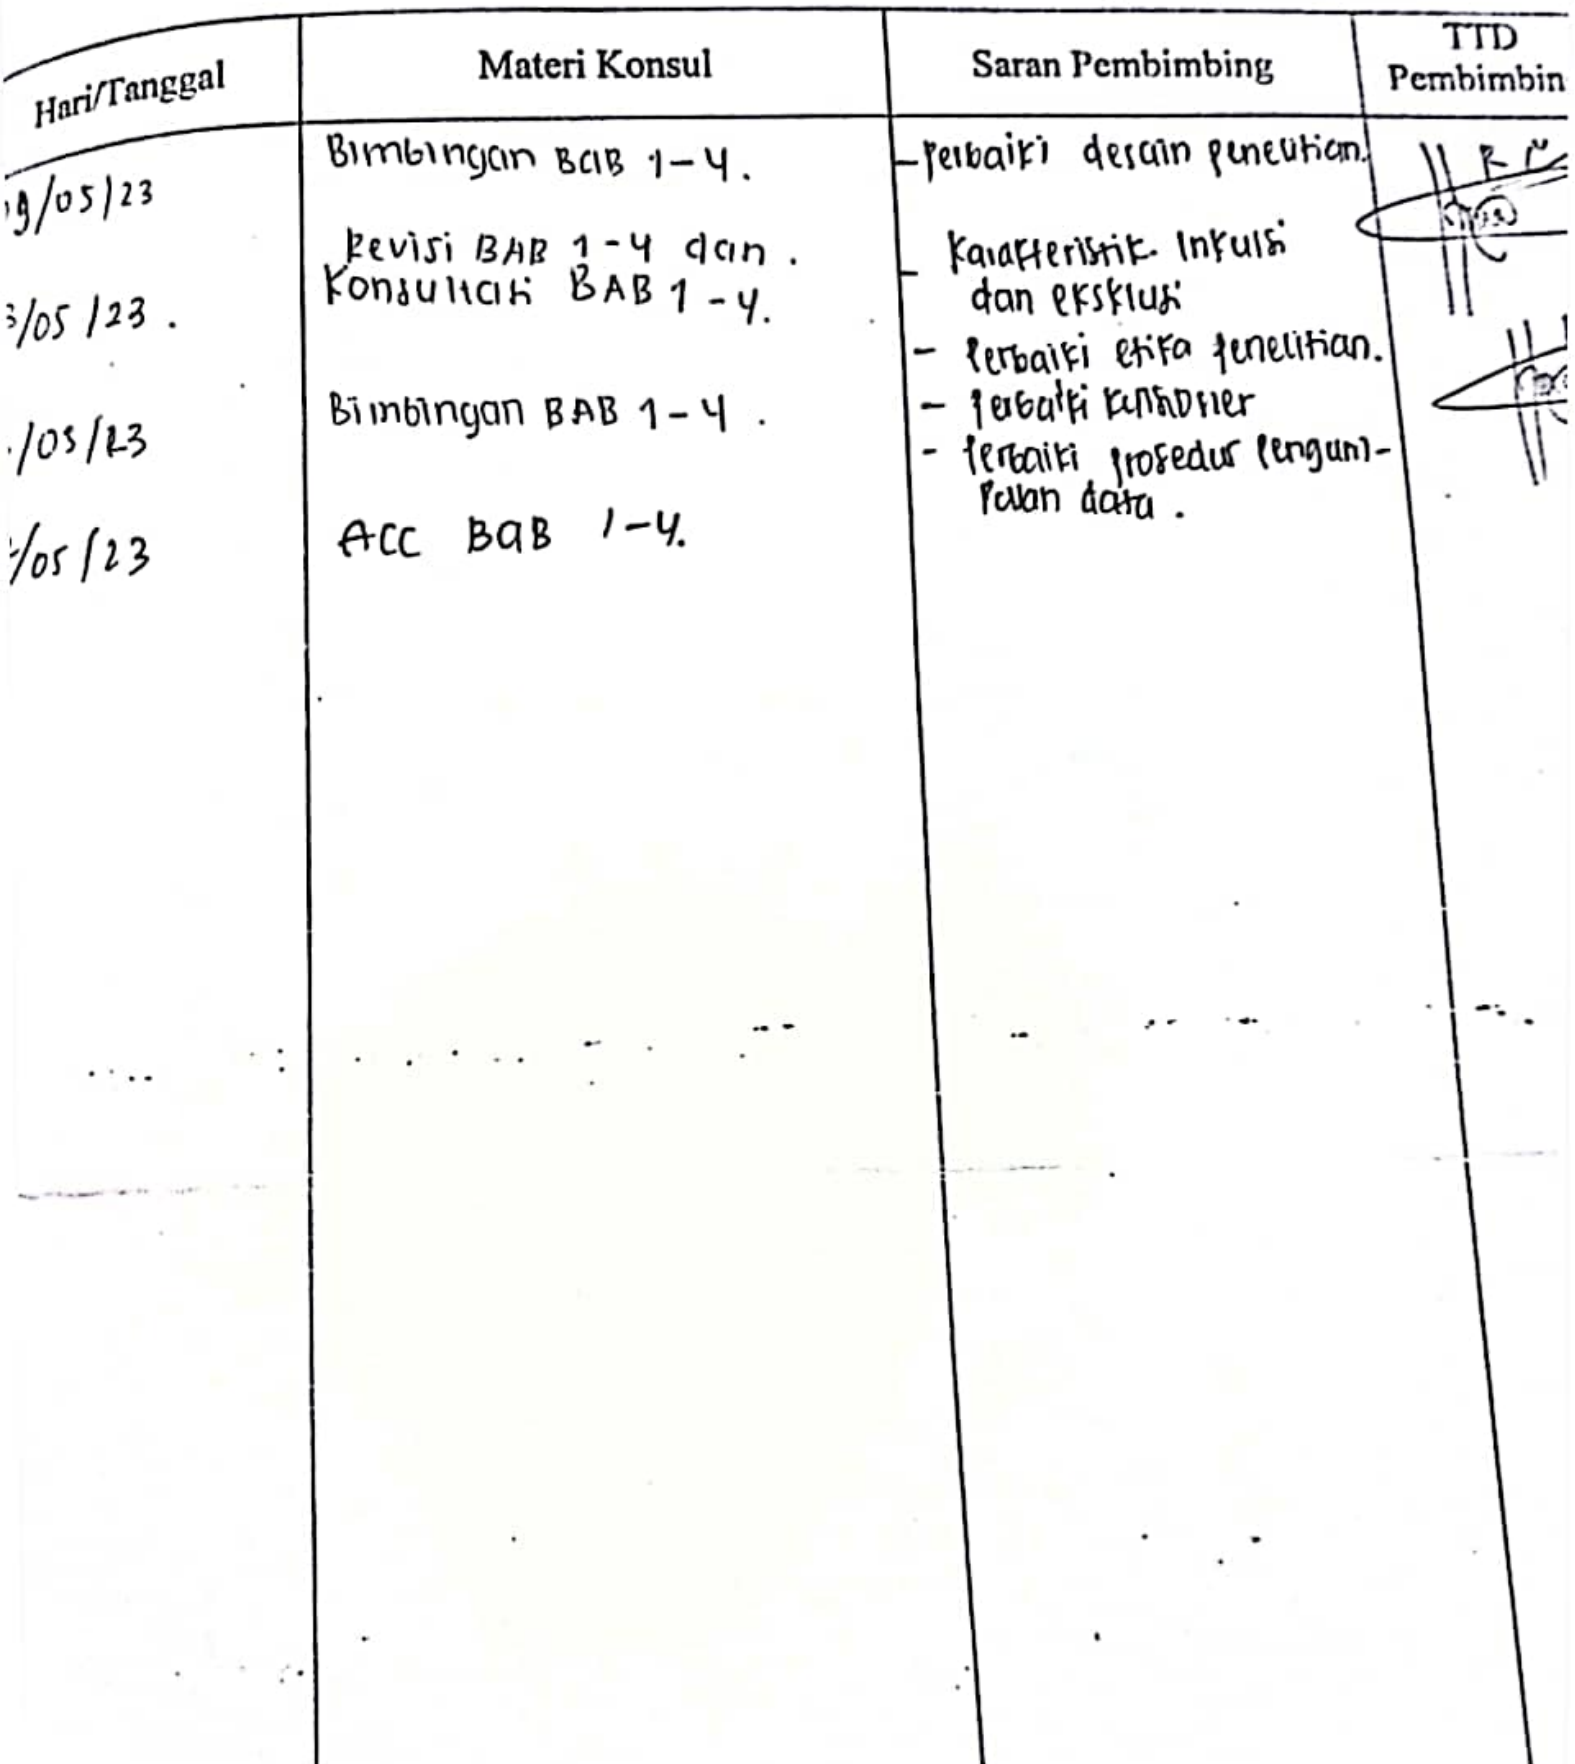 Hari/Tanggal
Materi Konsul
Saran Pembimbing
TTD
Pembimbin
9/05/23
Bimbingan BaB 1-4.
- Perbaiki desain penelitian.
3/05/23.
Revisi BAB 1-4 dan.
Konsultasi BAB 1-4.
- Karakteristik Inkulsi
dan eksklusi
- Perbaiki etika penelitian.
/05/23
Bimbingan BAB 1-4.
- Perbaiki
- Perbaiki prosedur Pengum-
Pulan data.
/05/23
ACC BaB 1-4.